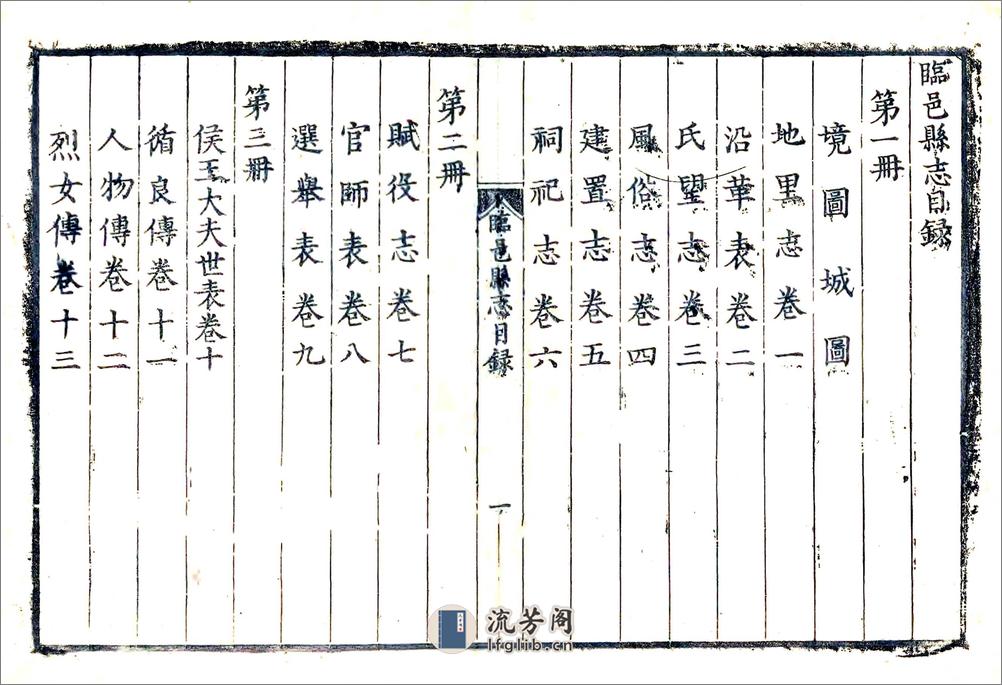 臨邑縣志目録
第一冊
境圖城圖
地里志卷一
沿革表卷二
氏朢志卷三
風俗志卷四
建置志卷五
祠祀志卷六
臨邑縣志目録
一
第二冊
賦役志卷七
官師表卷八
選舉表卷九
第三冊
侯王大夫世表卷十
循良傳卷十一
人物傳卷十二
烈女傳卷十三
流芳阁
lfglib.cn